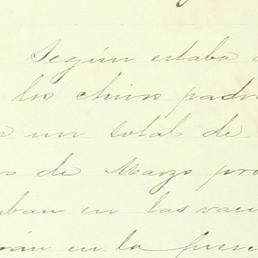 Según estaba
los chinos padr
un total de
de Marzo pro
aban en las vacu
rán en la